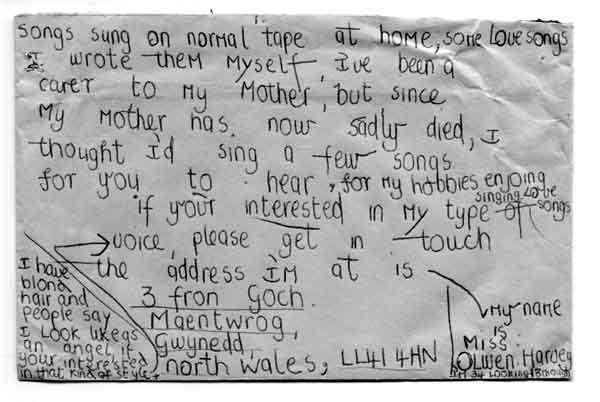 songs sung on normal tape at home, some love songs
I wrote them myself, I've been a
carer to my Mother, but since
My Mother has now sadly died, I
thought I'd sing a few songs
for you to hear, for my hobbies enjoing
singing Love
if your interested in my type of songs
voice, please get in touch
the address I'm at is
3 fron Goch.
Maentwrog,
Gwynedd,
north wales, LL41 4HN
I have
blond
hair and
people say
I Look Like as
an angel, if
your interested
in that kind of style
My name
is
Miss
Olwen Harvey
I'M 34 Looking 18 though